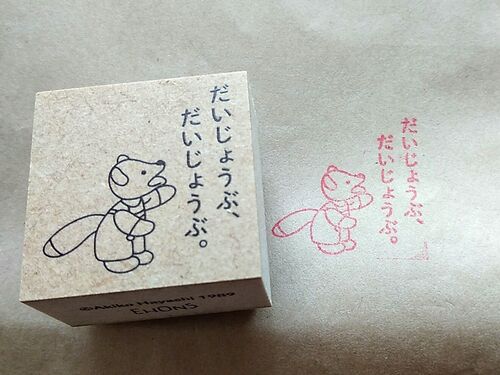 だいじょうぶ、
だいじょうぶ。
©Akiko Hayashi 1989
EHONS
だいじょうぶ、
だいじょうぶ。